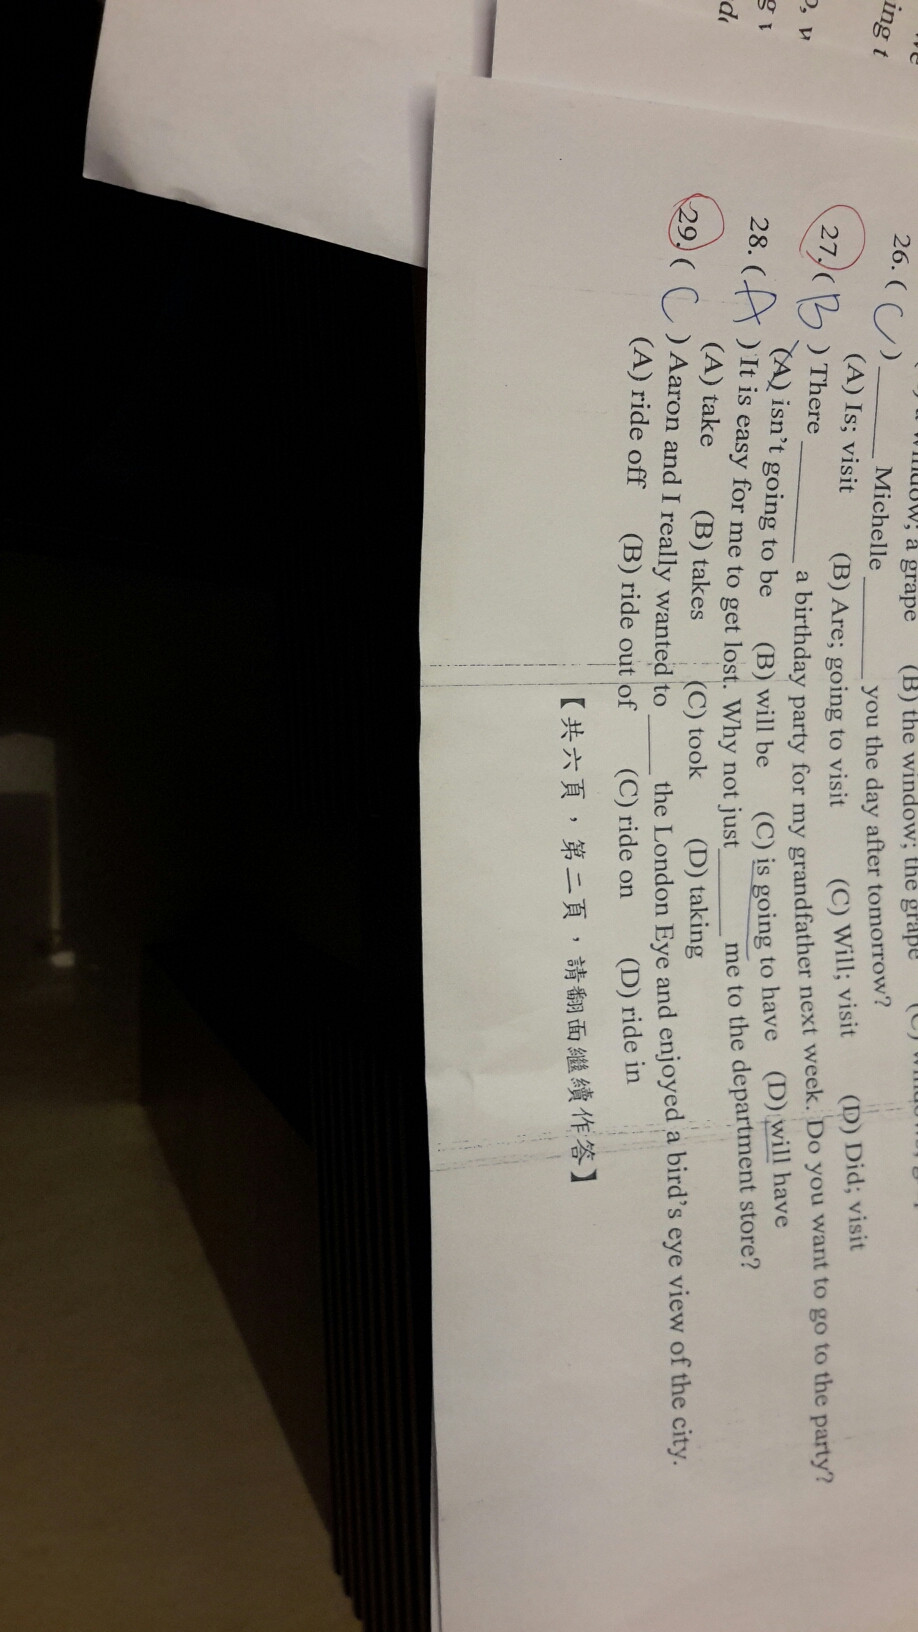 ing t
a grape (B) the window; the grape
26. ( C ) ______ Michelle ______ you the day after tomorrow?
(A) Is; visit (B) Are; going to visit (C) Will; visit (D) Did; visit
27. ( B ) There ______ a birthday party for my grandfather next week. Do you want to go to the party?
(A) isn't going to be (B) will be (C) is going to have (D) will have
28. ( A ) It is easy for me to get lost. Why not just ______ me to the department store?
(A) take (B) takes (C) took (D) taking
29. ( C ) Aaron and I really wanted to ____ the London Eye and enjoyed a bird's eye view of the city.
(A) ride off (B) ride out of (C) ride on (D) ride in
【共六頁，第二頁，請翻面繼續作答】